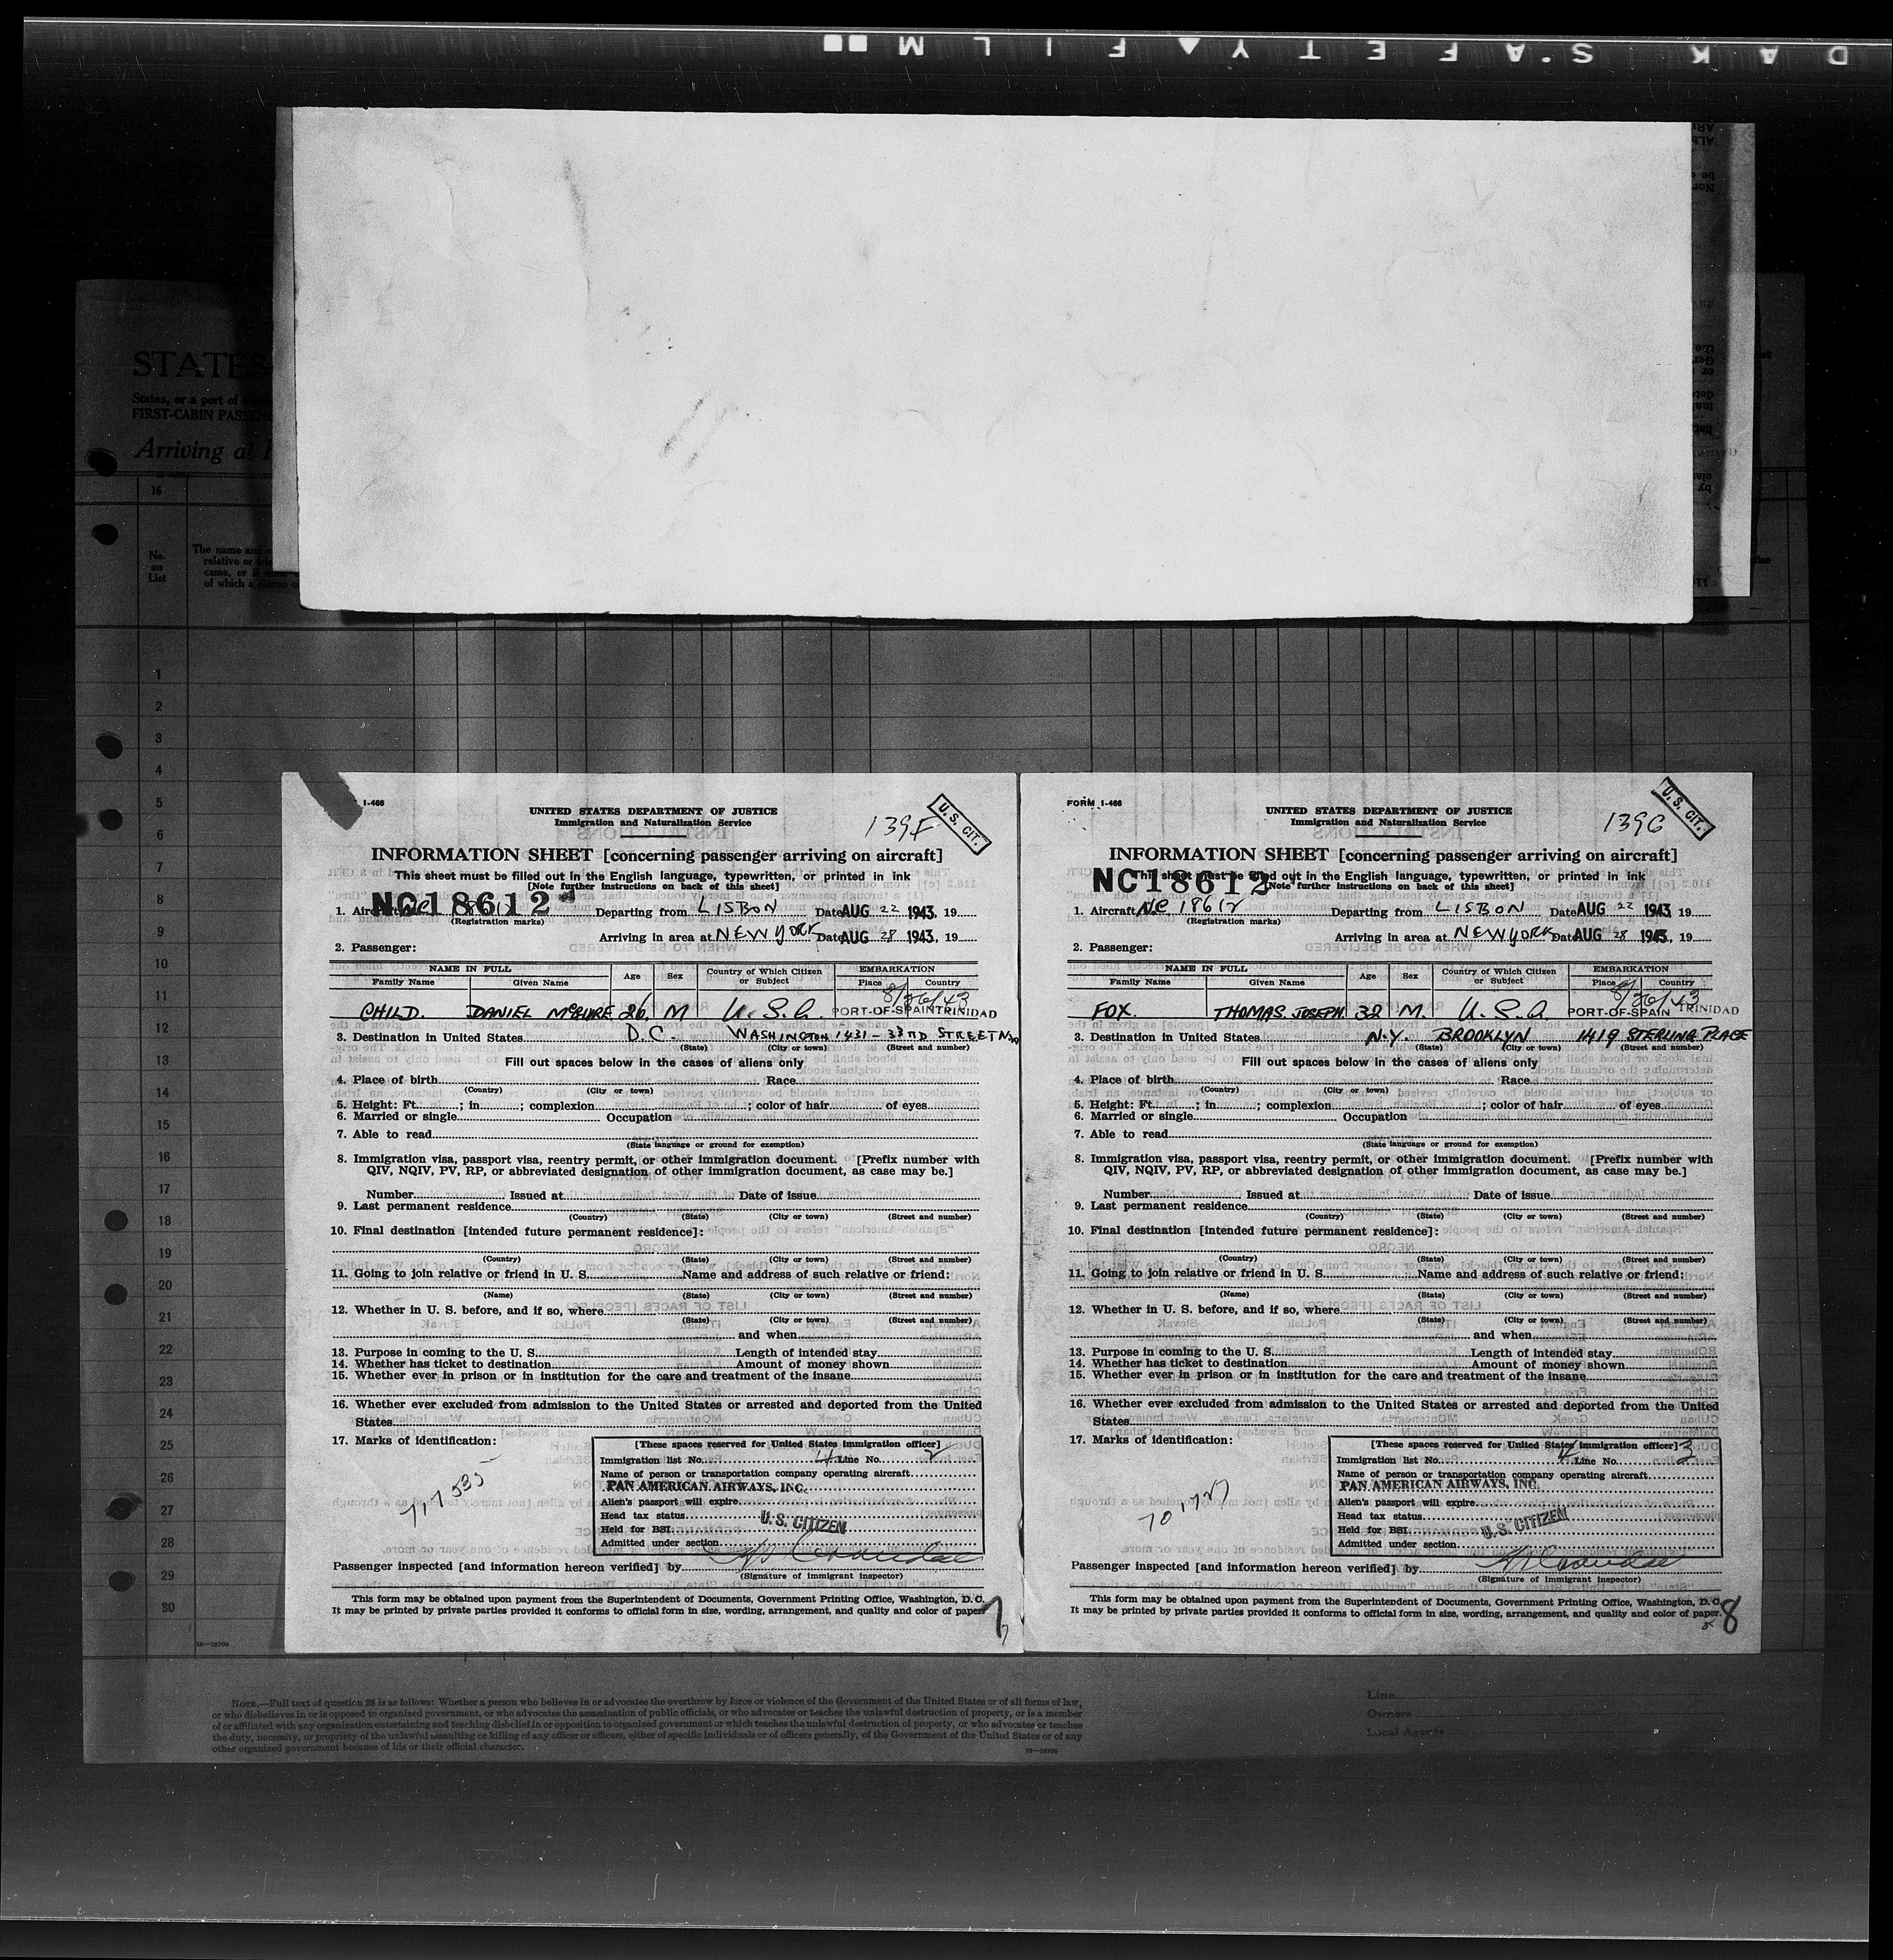 D A K S.A F E T Y ▲ F I L M ■■
STATES
States, or a port of
FIRST-CABIN PASSEN
Arriving at
16
No. on List
The name and
relative or
came, or if
of which a
1
2
3
4
5
6
7
8
9
10
11
12
13
14
15
16
17
18
19
20
21
22
23
24
25
26
27
28
29
30
I-466
UNITED STATES DEPARTMENT OF JUSTICE
Immigration and Naturalization Service
139F
U. S. CIT.
INFORMATION SHEET [concerning passenger arriving on aircraft]
This sheet must be filled out in the English language, typewritten, or printed in ink
[Note further instructions on back of this sheet]
NC18612
1. Aircraft Departing from LISBON Date AUG 22 1943, 19
(Registration marks)
Arriving in area at NEW YORK Date AUG 28 1943, 19
2. Passenger:
NAME IN FULL Age Sex Country of Which Citizen or Subject EMBARKATION
Family Name Given Name Place Country
8/26/43
CHILD. DANIEL McGUIRE 26 M U.S.A. PORT-OF-SPAIN TRINIDAD
3. Destination in United States D.C. WASHINGTON 1431-33RD STREET N.W
(State) (City or town) (Street and number)
Fill out spaces below in the cases of aliens only
4. Place of birth Race
(Country) (City or town)
5. Height: Ft. ; in. ; complexion ; color of hair of eyes
6. Married or single Occupation
7. Able to read
(State language or ground for exemption)
8. Immigration visa, passport visa, reentry permit, or other immigration document. [Prefix number with
QIV, NQIV, PV, RP, or abbreviated designation of other immigration document, as case may be.]
Number Issued at Date of issue
9. Last permanent residence
(Country) (State) (City or town) (Street and number)
10. Final destination [intended future permanent residence]:
(Country) (State) (City or town) (Street and number)
11. Going to join relative or friend in U. S. Name and address of such relative or friend:
(Name) (State) (City or town) (Street and number)
12. Whether in U. S. before, and if so, where
(State) (City or town) (Street and number)
and when
13. Purpose in coming to the U. S. Length of intended stay
14. Whether has ticket to destination Amount of money shown
15. Whether ever in prison or in institution for the care and treatment of the insane
16. Whether ever excluded from admission to the United States or arrested and deported from the United
States
17. Marks of identification:
717535
[These spaces reserved for United States immigration officer]
Immigration list No. 4 Line No. 2
Name of person or transportation company operating aircraft
PAN AMERICAN AIRWAYS, INC.
Alien's passport will expire
Head tax status U. S. CITIZEN
Held for BSI
Admitted under section
Passenger inspected [and information hereon verified] by
(Signature of immigrant inspector)
This form may be obtained upon payment from the Superintendent of Documents, Government Printing Office, Washington, D. C.
It may be printed by private parties provided it conforms to official form in size, wording, arrangement, and quality and color of paper.
7
FORM I-466
UNITED STATES DEPARTMENT OF JUSTICE
Immigration and Naturalization Service
139G
U. S. CIT.
INFORMATION SHEET [concerning passenger arriving on aircraft]
This sheet must be filled out in the English language, typewritten, or printed in ink
[Note further instructions on back of this sheet]
NC18612
1. Aircraft NC 18612 Departing from LISBON Date AUG 22 1943, 19
(Registration marks)
Arriving in area at NEW YORK Date AUG 28 1943, 19
2. Passenger:
NAME IN FULL Age Sex Country of Which Citizen or Subject EMBARKATION
Family Name Given Name Place Country
8/26/43
FOX. THOMAS JOSEPH 32 M. U.S.A. PORT-OF-SPAIN TRINIDAD
3. Destination in United States N.Y. BROOKLYN 1419 STERLING PLACE
(State) (City or town) (Street and number)
Fill out spaces below in the cases of aliens only
4. Place of birth Race
(Country) (City or town)
5. Height: Ft. ; in. ; complexion ; color of hair of eyes
6. Married or single Occupation
7. Able to read
(State language or ground for exemption)
8. Immigration visa, passport visa, reentry permit, or other immigration document. [Prefix number with
QIV, NQIV, PV, RP, or abbreviated designation of other immigration document, as case may be.]
Number Issued at Date of issue
9. Last permanent residence
(Country) (State) (City or town) (Street and number)
10. Final destination [intended future permanent residence]:
(Country) (State) (City or town) (Street and number)
11. Going to join relative or friend in U. S. Name and address of such relative or friend:
(Name) (State) (City or town) (Street and number)
12. Whether in U. S. before, and if so, where
(State) (City or town) (Street and number)
and when
13. Purpose in coming to the U. S. Length of intended stay
14. Whether has ticket to destination Amount of money shown
15. Whether ever in prison or in institution for the care and treatment of the insane
16. Whether ever excluded from admission to the United States or arrested and deported from the United
States
17. Marks of identification:
[These spaces reserved for United States immigration officer]
Immigration list No. 4 Line No. 3
Name of person or transportation company operating aircraft
PAN AMERICAN AIRWAYS, INC.
Alien's passport will expire
Head tax status
Held for BSI U. S. CITIZEN
Admitted under section
Passenger inspected [and information hereon verified] by
(Signature of immigrant inspector)
This form may be obtained upon payment from the Superintendent of Documents, Government Printing Office, Washington, D. C.
It may be printed by private parties provided it conforms to official form in size, wording, arrangement, and quality and color of paper.
8
NOTE.—Full text of question 28 is as follows: Whether a person who believes in or advocates the overthrow by force or violence of the Government of the United States or of all forms of law,
or who disbelieves in or is opposed to organized government, or who advocates the assassination of public officials, or who advocates or teaches the unlawful destruction of property, or is a member
of or affiliated with any organization entertaining and teaching disbelief in or opposition to organized government or which teaches the unlawful destruction of property, or who advocates or teaches
the duty, necessity, or propriety of the unlawful assaulting or killing of any officer or officers, either of specific individuals or of officers generally, of the Government of the United States or of any
other organized government because of his or their official character.
Line
Owners
Local Agents